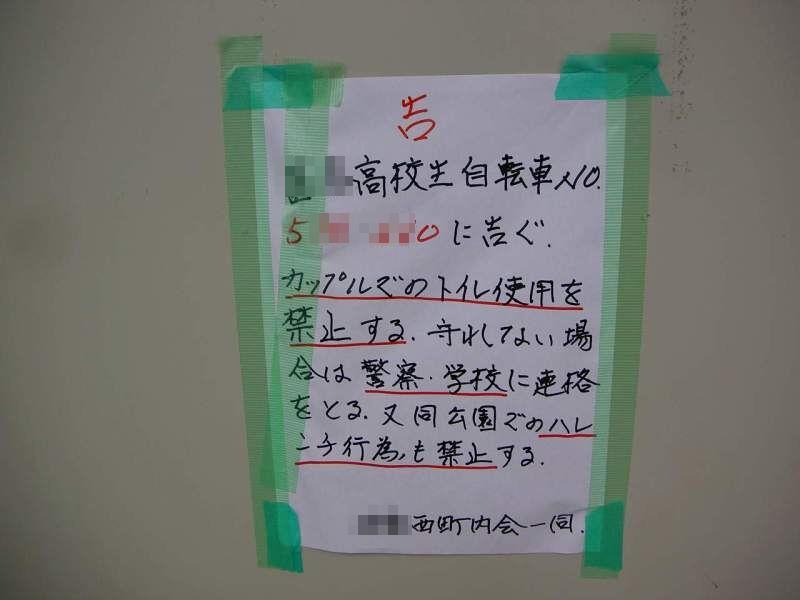 告
高校生自転車No.
5 0に告ぐ.
カップルでのトイレ使用を
禁止する.守れしてない場
合は警察・学校に連絡
をとる.又同公園でのハレ
ンチ行為も禁止する.
西町内会一同.